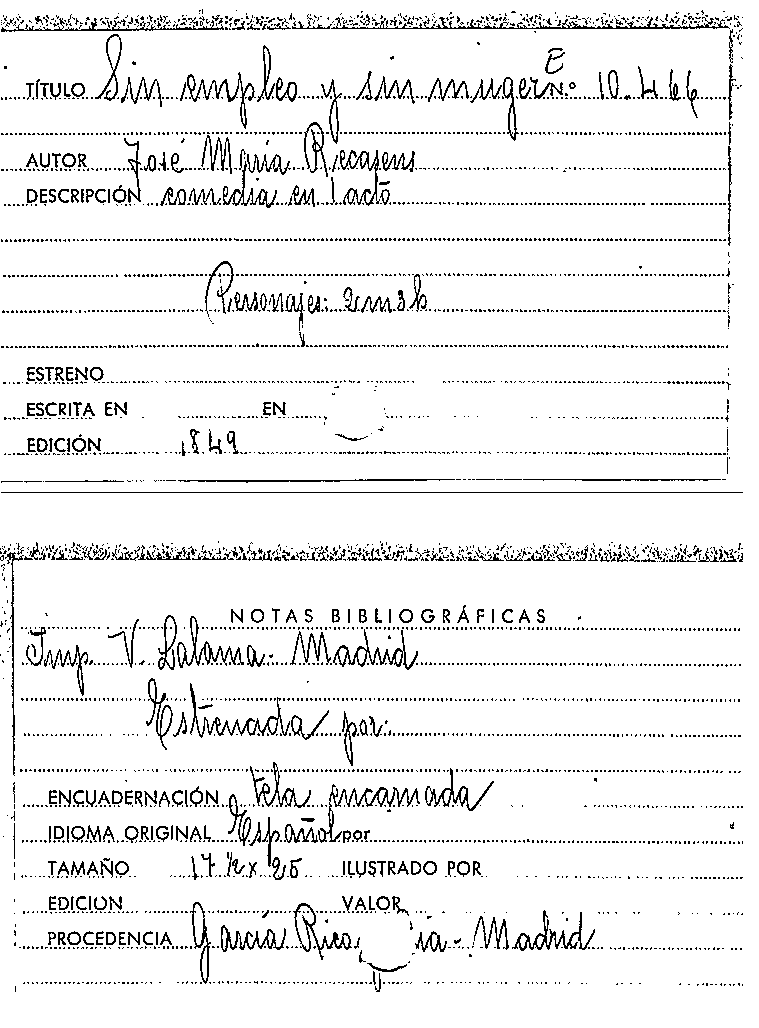 E
TÍTULO Sin empleo y sin muger N.º 10.466
AUTOR José Maria Recasens
DESCRIPCIÓN comedia en 1 acto
Personajes: 2m 3h
ESTRENO
ESCRITA EN EN
EDICIÓN 1849
NOTAS BIBLIOGRÁFICAS
Imp. V. Lalama - Madrid
Estrenada por:
ENCUADERNACIÓN tela encarnada
IDIOMA ORIGINAL Español por
TAMAÑO 17 ½ x 25 ILUSTRADO POR
EDICION VALOR
PROCEDENCIA García Rico - Madrid